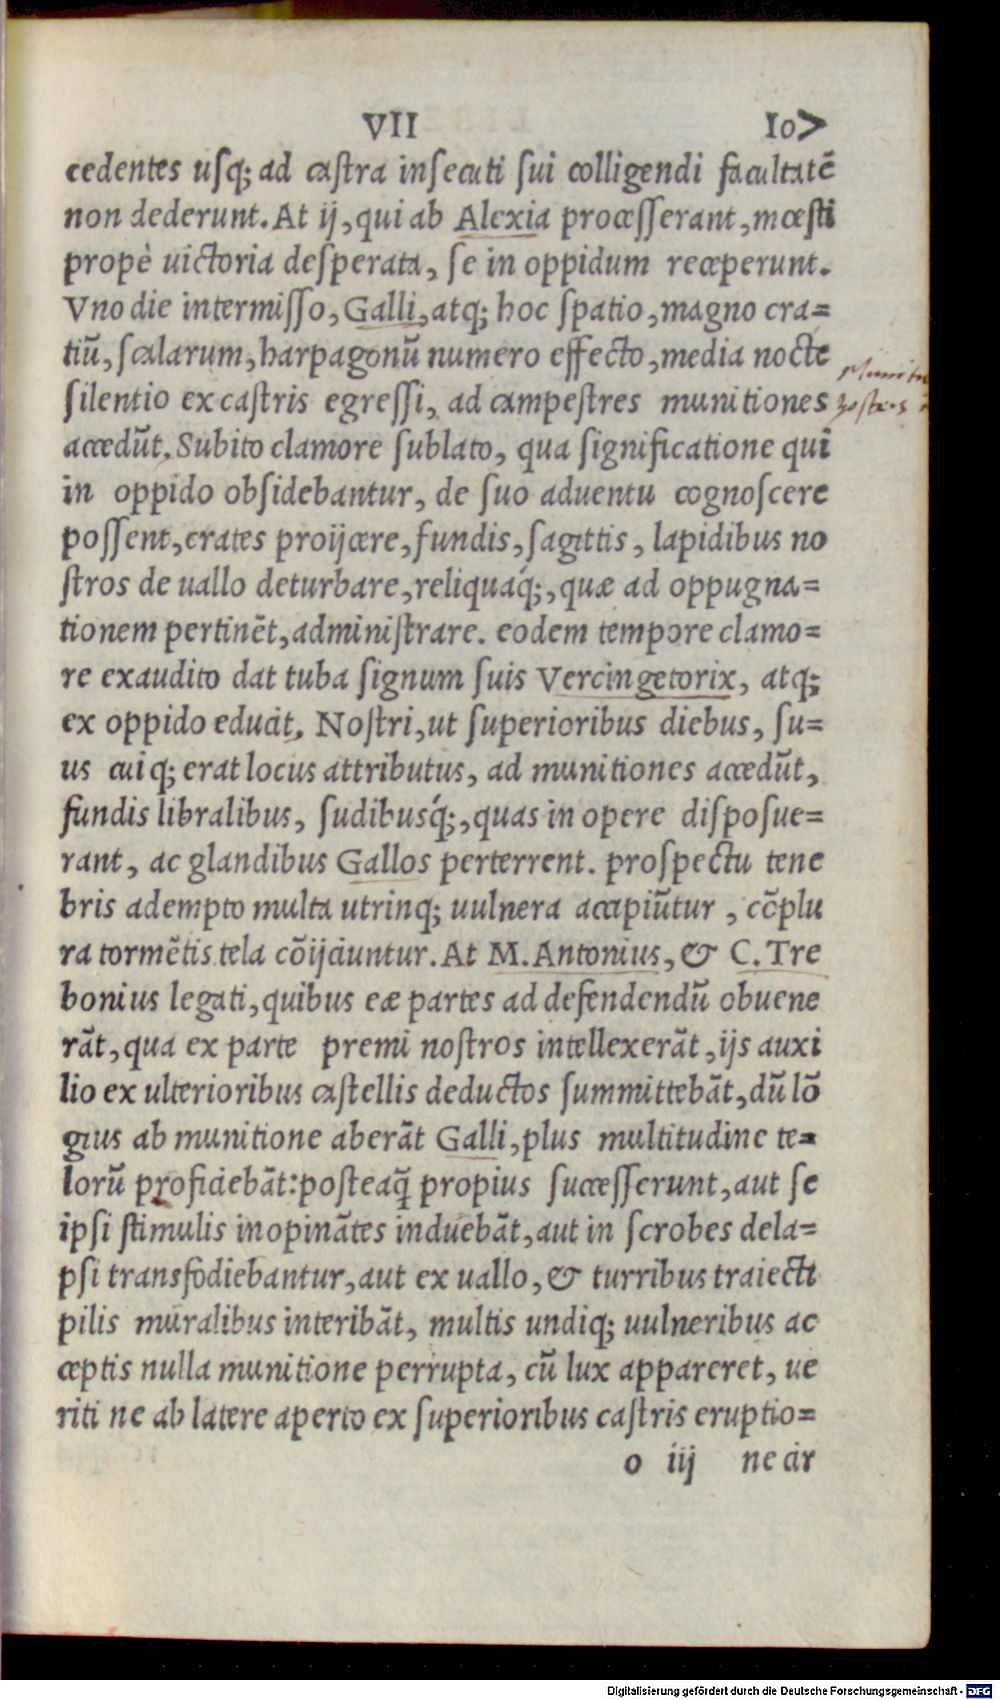 VII 107
cedentes usq; ad castra insecuti sui colligendi facultatē
non dederunt. At ij, qui ab Alexia processerant, mœsti
propè uictoria desperata, se in oppidum receperunt.
Vno die intermisso, Galli, atq; hoc spatio, magno cra=
tiū, scalarum, harpagonū numero effecto, media nocte
silentio ex castris egressi, ad campestres munitiones
accedūt. Subito clamore sublato, qua significatione qui
in oppido obsidebantur, de suo aduentu cognoscere
possent, crates proijcere, fundis, sagittis, lapidibus no
stros de uallo deturbare, reliquaq́;, quæ ad oppugna=
tionem pertinēt, administrare. eodem tempore clamo=
re exaudito dat tuba signum suis Vercingetorix, atq;
ex oppido educit. Nostri, ut superioribus diebus, su=
us cuiq; erat locus attributus, ad munitiones accedūt,
fundis libralibus, sudibusq́;, quas in opere disposue=
rant, ac glandibus Gallos perterrent. prospectu tene
bris adempto multa utrinq; uulnera accipiūtur, cōplu
ra tormētis tela cōijciuntur. At M. Antonius, & C. Tre
bonius legati, quibus eæ partes ad defendendū obuene
rāt, qua ex parte premi nostros intellexerāt, ijs auxi
lio ex ulterioribus castellis deductos summittebāt, dū lō
gius ab munitione aberāt Galli, plus multitudine te=
lorū proficiebāt: posteaq̃ propius successerunt, aut se
ipsi stimulis inopinātes induebāt, aut in scrobes dela=
psi transfodiebantur, aut ex uallo, & turribus traiecti
pilis muralibus interibāt, multis undiq; uulneribus ac
ceptis nulla munitione perrupta, cū lux appareret, ue
riti ne ab latere aperto ex superioribus castris eruptio=
o iij ne cir
Digitalisierung gefördert durch die Deutsche Forschungsgemeinschaft - DFG